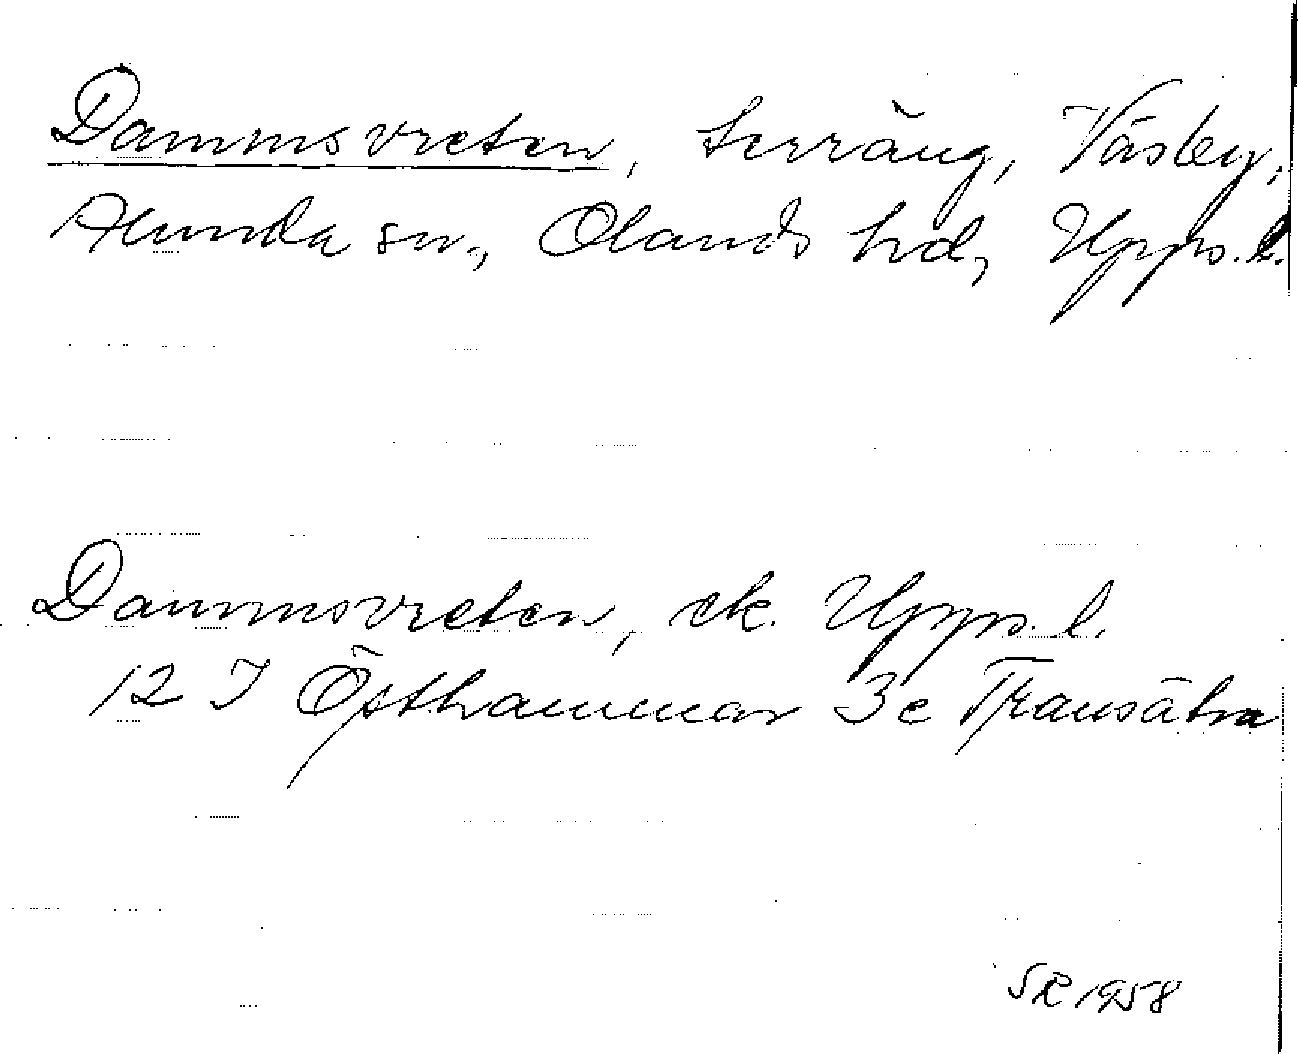 Dammsvreten, terräng, Väsby,
Alunda sn., Olands hd, Upps. l.
Dammsvreten, ek. Upps. l.
12 I Östhammar 3e Fransätra
SR 1958